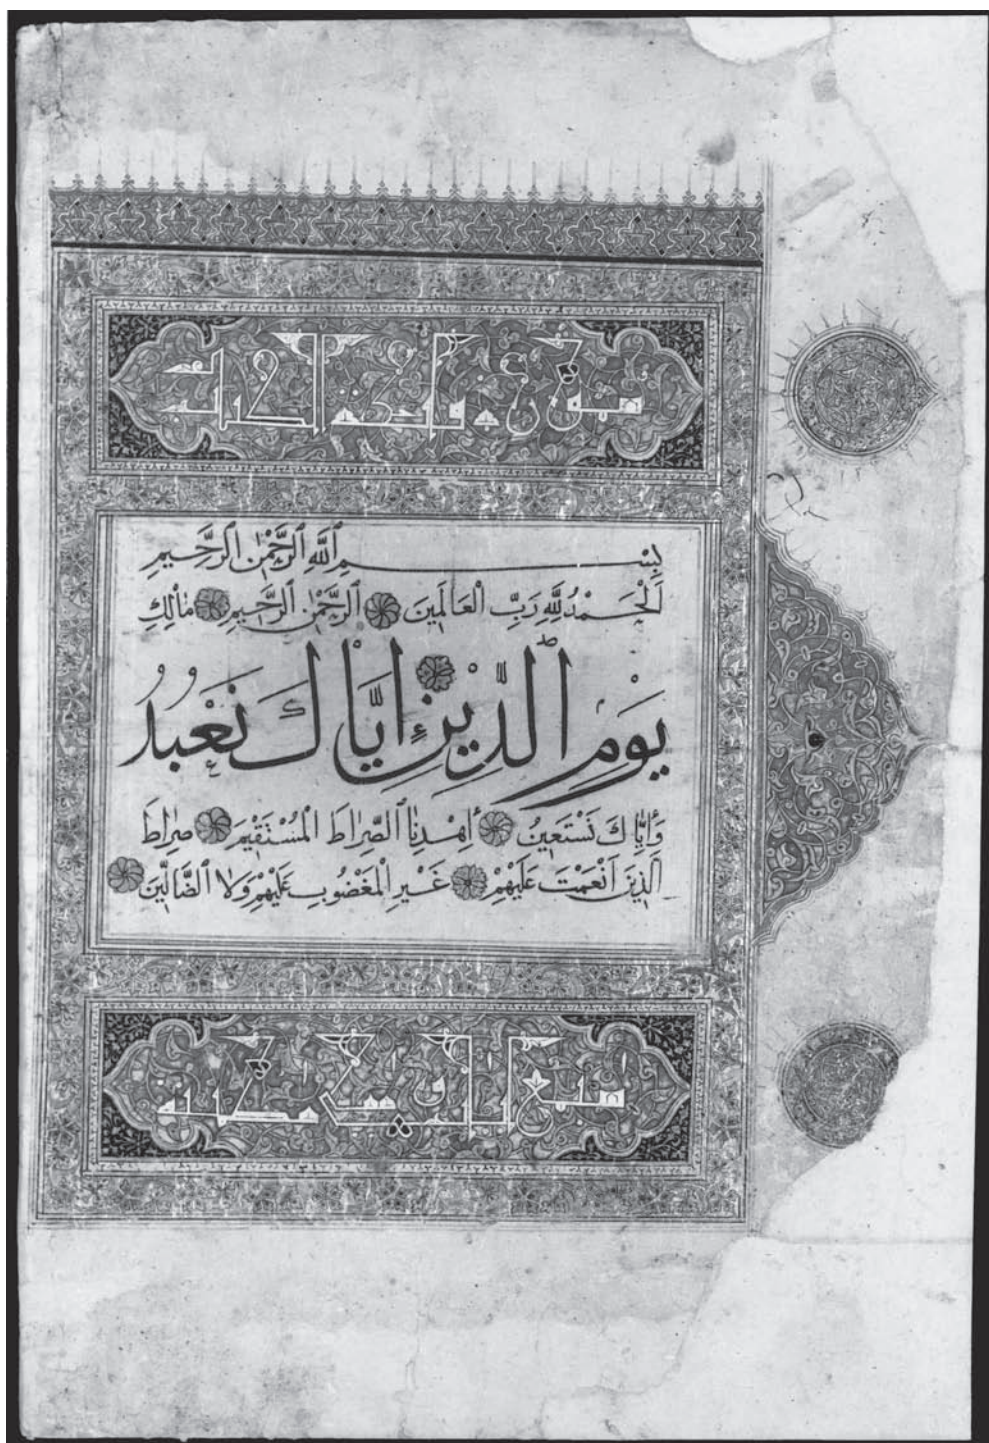 سورة فاتحة الكتاب
بِسْمِ ٱللَّهِ ٱلرَّحْمٰنِ ٱلرَّحِيمِ
اَلْحَمْدُ لِلَّهِ رَبِّ الْعَالَمِينَ ٱلرَّحْمٰنِ ٱلرَّحِيمِ مَالِكِ
يَوْمِ الدِّيْنِ اِيَّاكَ نَعْبُدُ
وَاِيَّاكَ نَسْتَعِينُ اِهْدِنَا ٱلصِّرَاطَ الْمُسْتَقِيْمَ صِرَاطَ
الَّذِينَ اَنْعَمْتَ عَلَيْهِمْ غَيْرِ الْمَغْضُوبِ عَلَيْهِمْ وَلَا ٱلضَّالِّينَ
سبع ايات مكية